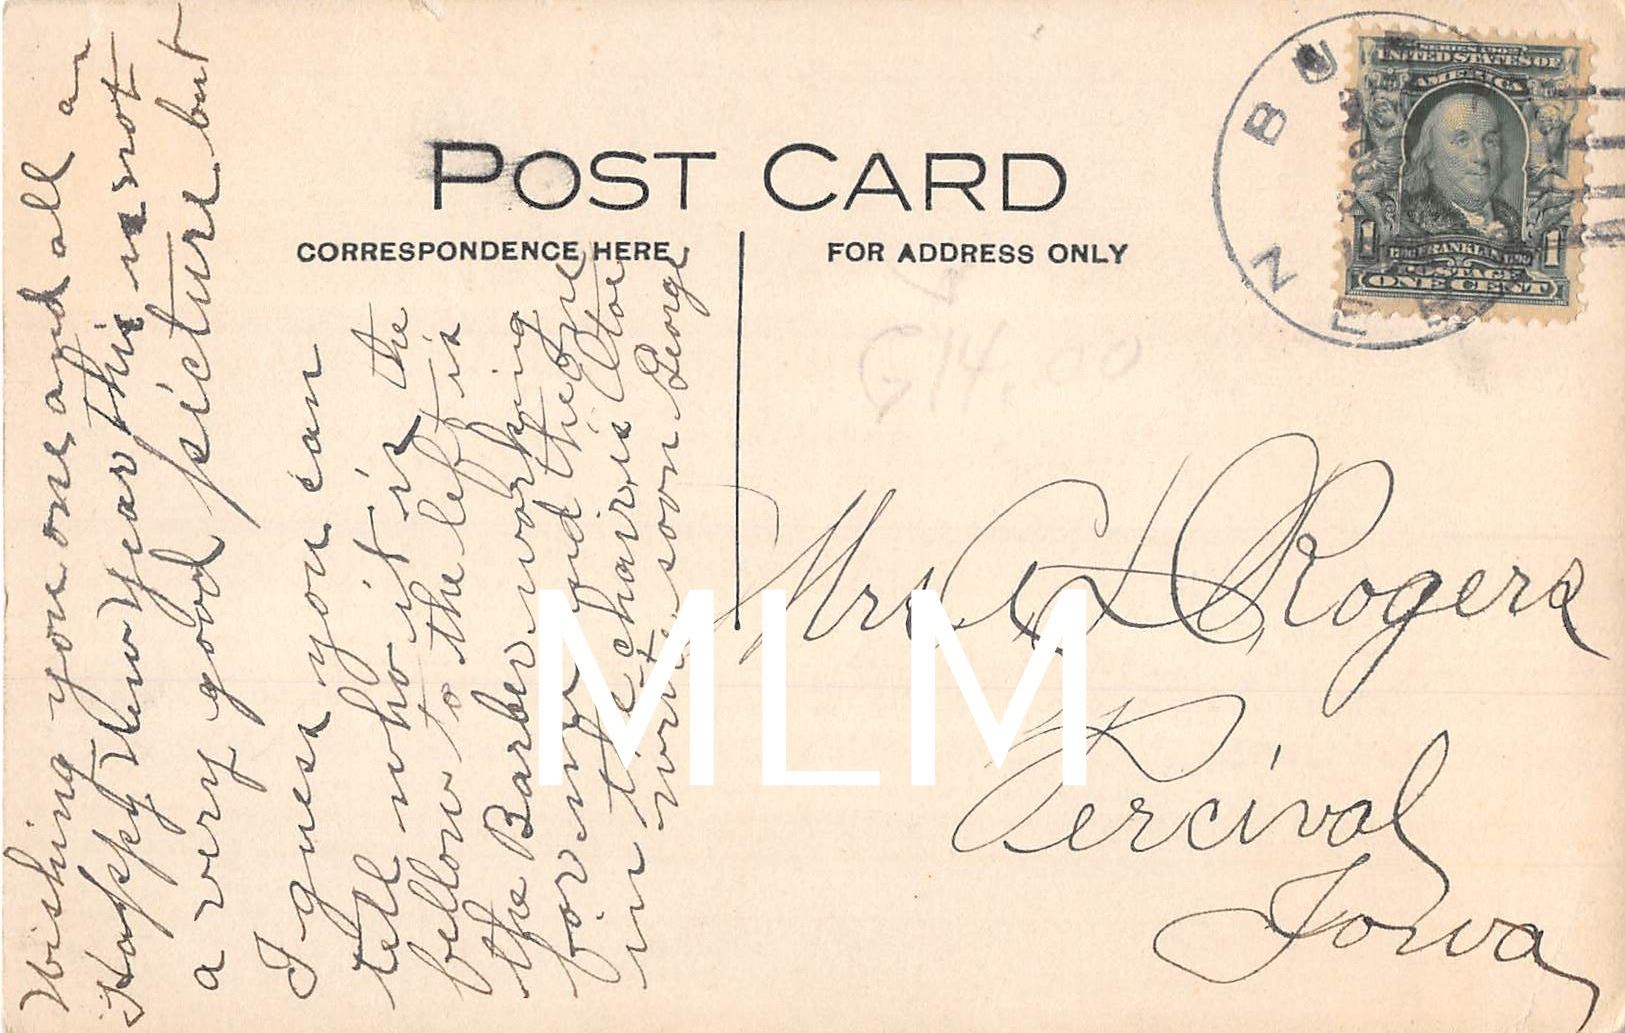 POST CARD
CORRESPONDENCE HERE
FOR ADDRESS ONLY
Wishing you one and all a
Happy New Year This is not
a very good picture but
I guess you can
tell who it is the
fellow to the left is
the Barber working
for me and the one
in the chair is
write soon George
Mrs C L Rogers
Percival
Iowa
SERIES 1902
UNITED STATES OF
AMERICA
1 FRANKLIN 1
POSTAGE
ONE CENT
G14.00
MLM